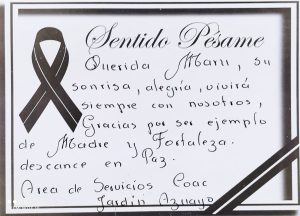 Sentido Pésame
Querida Maru, su
sonrisa, alegría, vivirá
siempre con nosotros,
Gracias por ser ejemplo
de Madre y Fortaleza.
descance en Paz.
Area de Servicios Coac
Jardín Azuayo